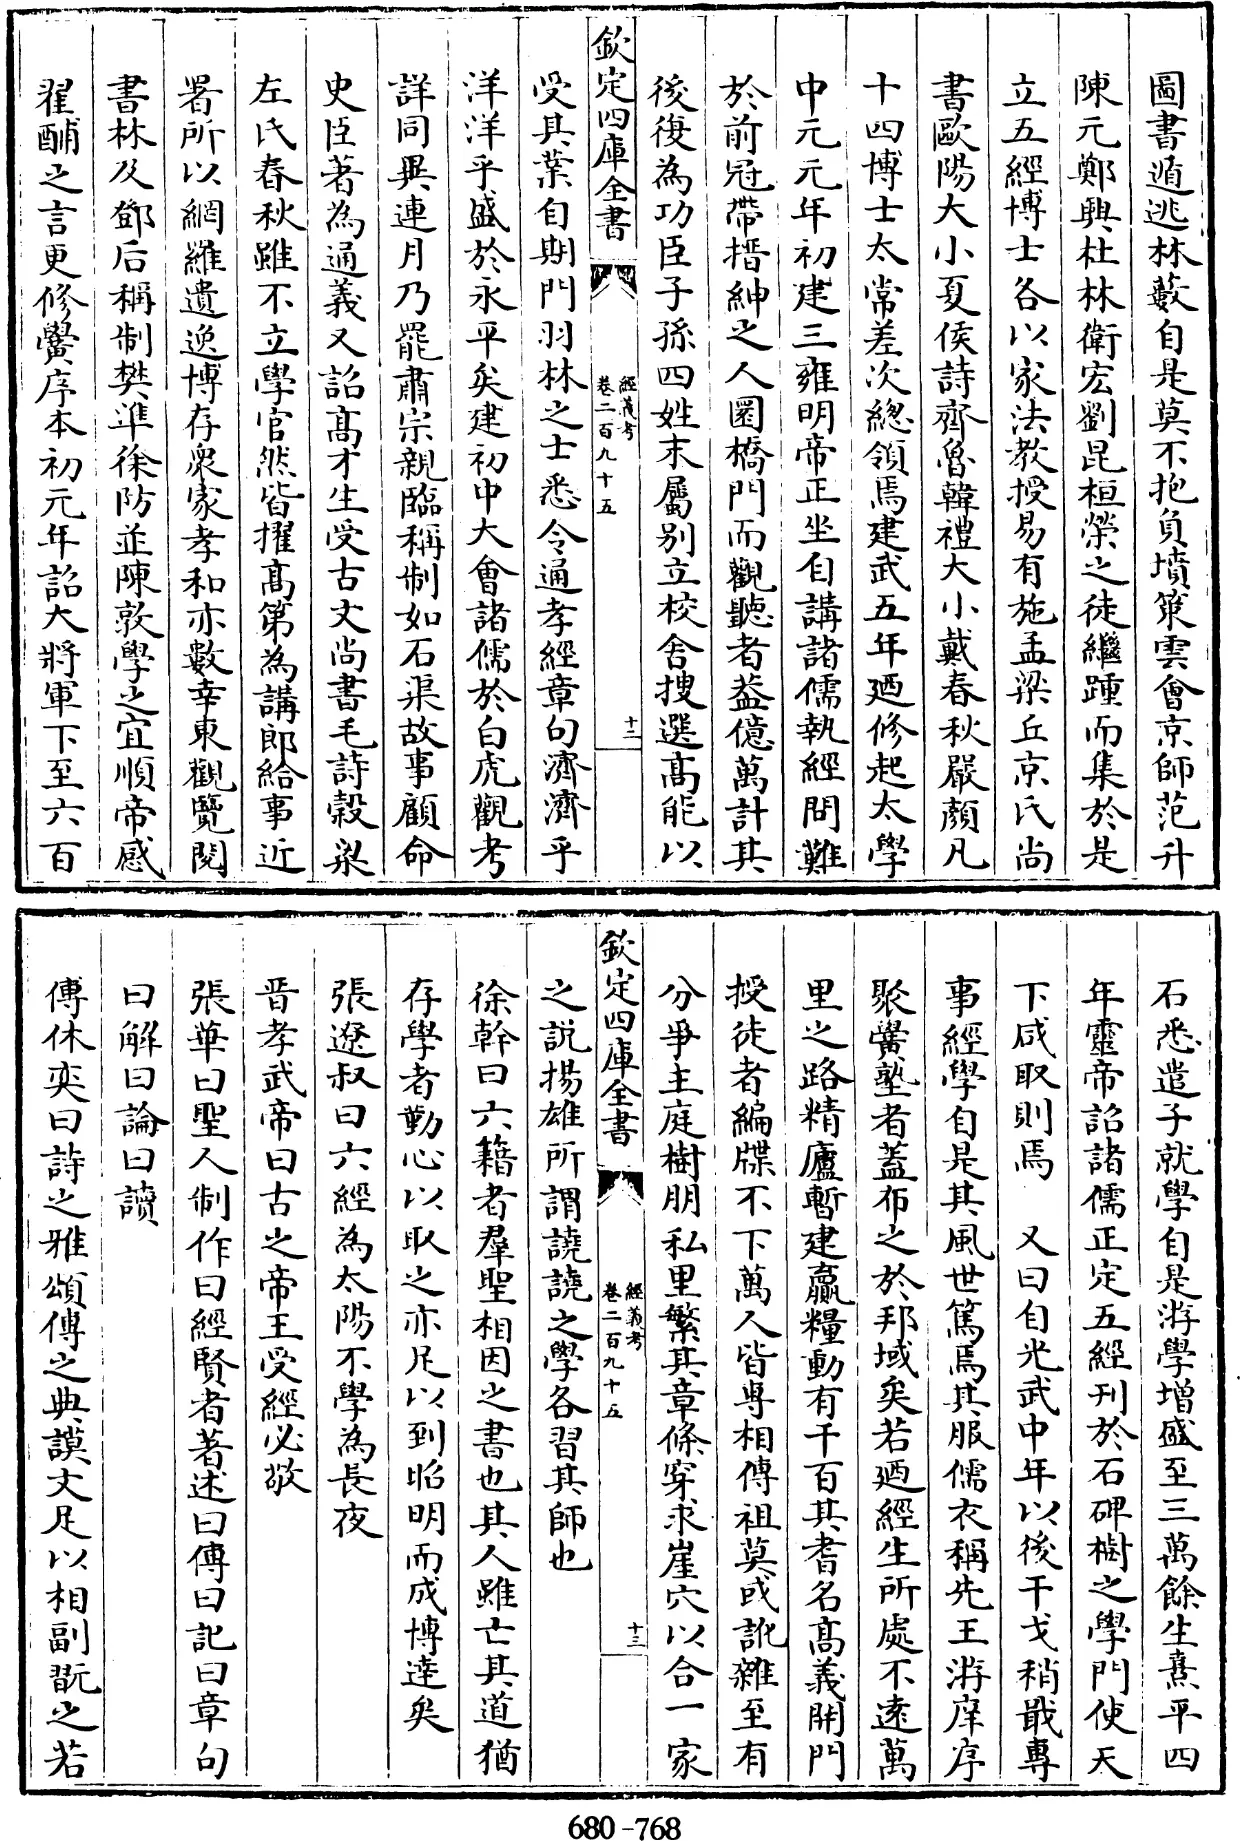 圖書遁逃林藪自是莫不抱負墳策雲會京師范升
陳元鄭興杜林衛宏劉昆桓榮之徒繼踵而集於是
立五經博士各以家法教授易有施孟梁丘京氏尚
書歐陽大小夏侯詩齊魯韓禮大小戴春秋嚴顏凡
十四博士太常差次總領焉建武五年廼修起太學
中元元年初建三雍明帝正坐自講諸儒執經問難
於前冠帶搢紳之人圜橋門而觀聽者葢億萬計其
後復為功臣子孫四姓末屬别立校舍搜選髙能以
欽定四庫全書
經義考
卷二百九十五
十二
受其業自期門羽林之士悉令通孝經章句濟濟乎
洋洋乎盛於永平矣建初中大會諸儒於白虎觀考
詳同異連月乃罷肅宗親臨稱制如石渠故事顧命
史臣著為通義又詔髙才生受古文尚書毛詩穀梁
左氏春秋雖不立學官然皆擢髙第為講郎給事近
署所以網羅遺逸博存衆家孝和亦數幸東觀覽閱
書林及鄧后稱制樊準徐防並陳敦學之宜順帝感
翟酺之言更修黌序本初元年詔大將軍下至六百
石悉遣子就學自是游學增盛至三萬餘生熹平四
年靈帝詔諸儒正定五經刊於石碑樹之學門使天
下咸取則焉　又曰自光武中年以後干戈稍戢專
事經學自是其風世篤焉其服儒衣稱先王游庠序
聚黌塾者蓋布之於邦域矣若廼經生所處不遠萬
里之路精廬暫建贏糧動有千百其耆名髙義開門
授徒者編牒不下萬人皆專相傳祖莫或訛雜至有
分爭主庭樹朋私里繁其章條穿求崖穴以合一家
欽定四庫全書
經義考
卷二百九十五
十三
之說揚雄所謂譊譊之學各習其師也
徐幹曰六籍者羣聖相因之書也其人雖亡其道猶
存學者勤心以取之亦足以到昭明而成博逹矣
張遼叔曰六經為太陽不學為長夜
晉孝武帝曰古之帝王受經必敬
張華曰聖人制作曰經賢者著述曰傳曰記曰章句
曰解曰論曰讀
傅休奕曰詩之雅頌傳之典謨文足以相副翫之若
680-768